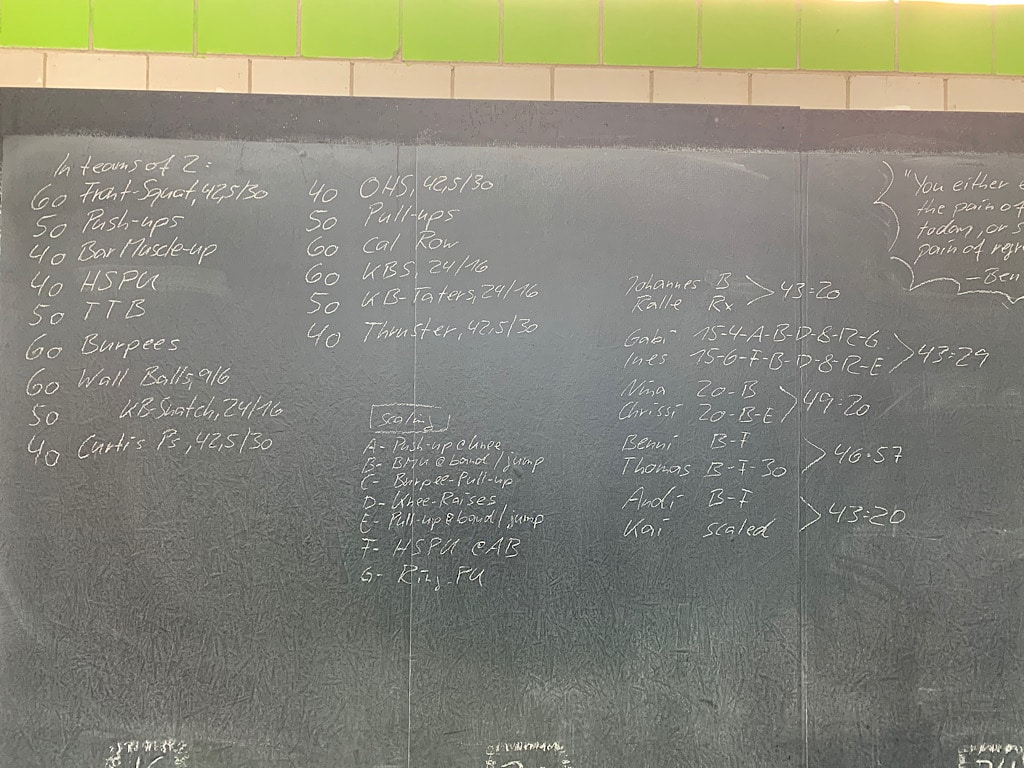 In teams of 2:
60 Front-Squat, 42,5/30
50 Push-ups
40 Bar Muscle-up
40 HSPU
50 TTB
60 Burpees
60 Wall Balls, 9/6
50 KB-Snatch, 24/16
40 Curtis Ps, 42,5/30
40 OHS, 42,5/30
50 Pull-ups
60 Cal Row
60 KBS, 24/16
50 KB-Taters, 24/16
40 Thruster, 42,5/30
Scaling
A- Push-up @ knee
B- BMU @ band / jump
C- Burpee-Pull-up
D- Knee-Raises
E- Pull-up @ band / jump
F- HSPU @ AB
G- Ring-PU
Johannes B
Kalle Rx
43:20
Gabi 15-4-A-B-D-8-12-G
Ines 15-6-F-B-D-8-12-E
43:29
Nina 20-B
Chrissi 20-B-E
49:20
Benni B-F
Thomas B-F-30
46:57
Andi B-F
Kai scaled
43:20
"You either
the pain of
today, or
pain of
- Ben